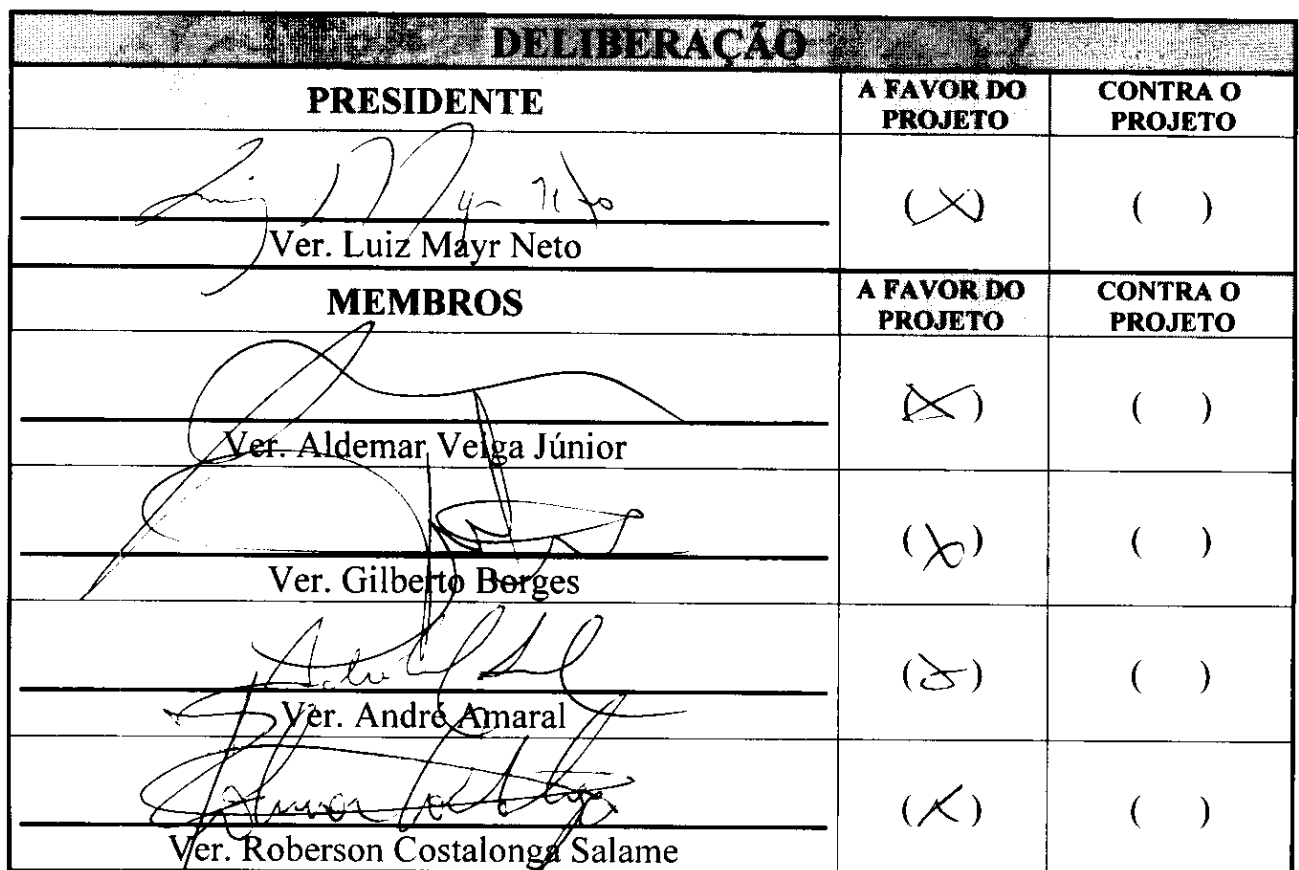 DELIBERAÇÃO
PRESIDENTE
A FAVOR DO
PROJETO
CONTRA O
PROJETO
(X)
( )
Ver. Luiz Mayr Neto
MEMBROS
A FAVOR DO
PROJETO
CONTRA O
PROJETO
(X)
( )
Ver. Aldemar Veiga Júnior
(X)
( )
Ver. Gilberto Borges
(X)
( )
Ver. André Amaral
(X)
( )
Ver. Roberson Costalonga Salame